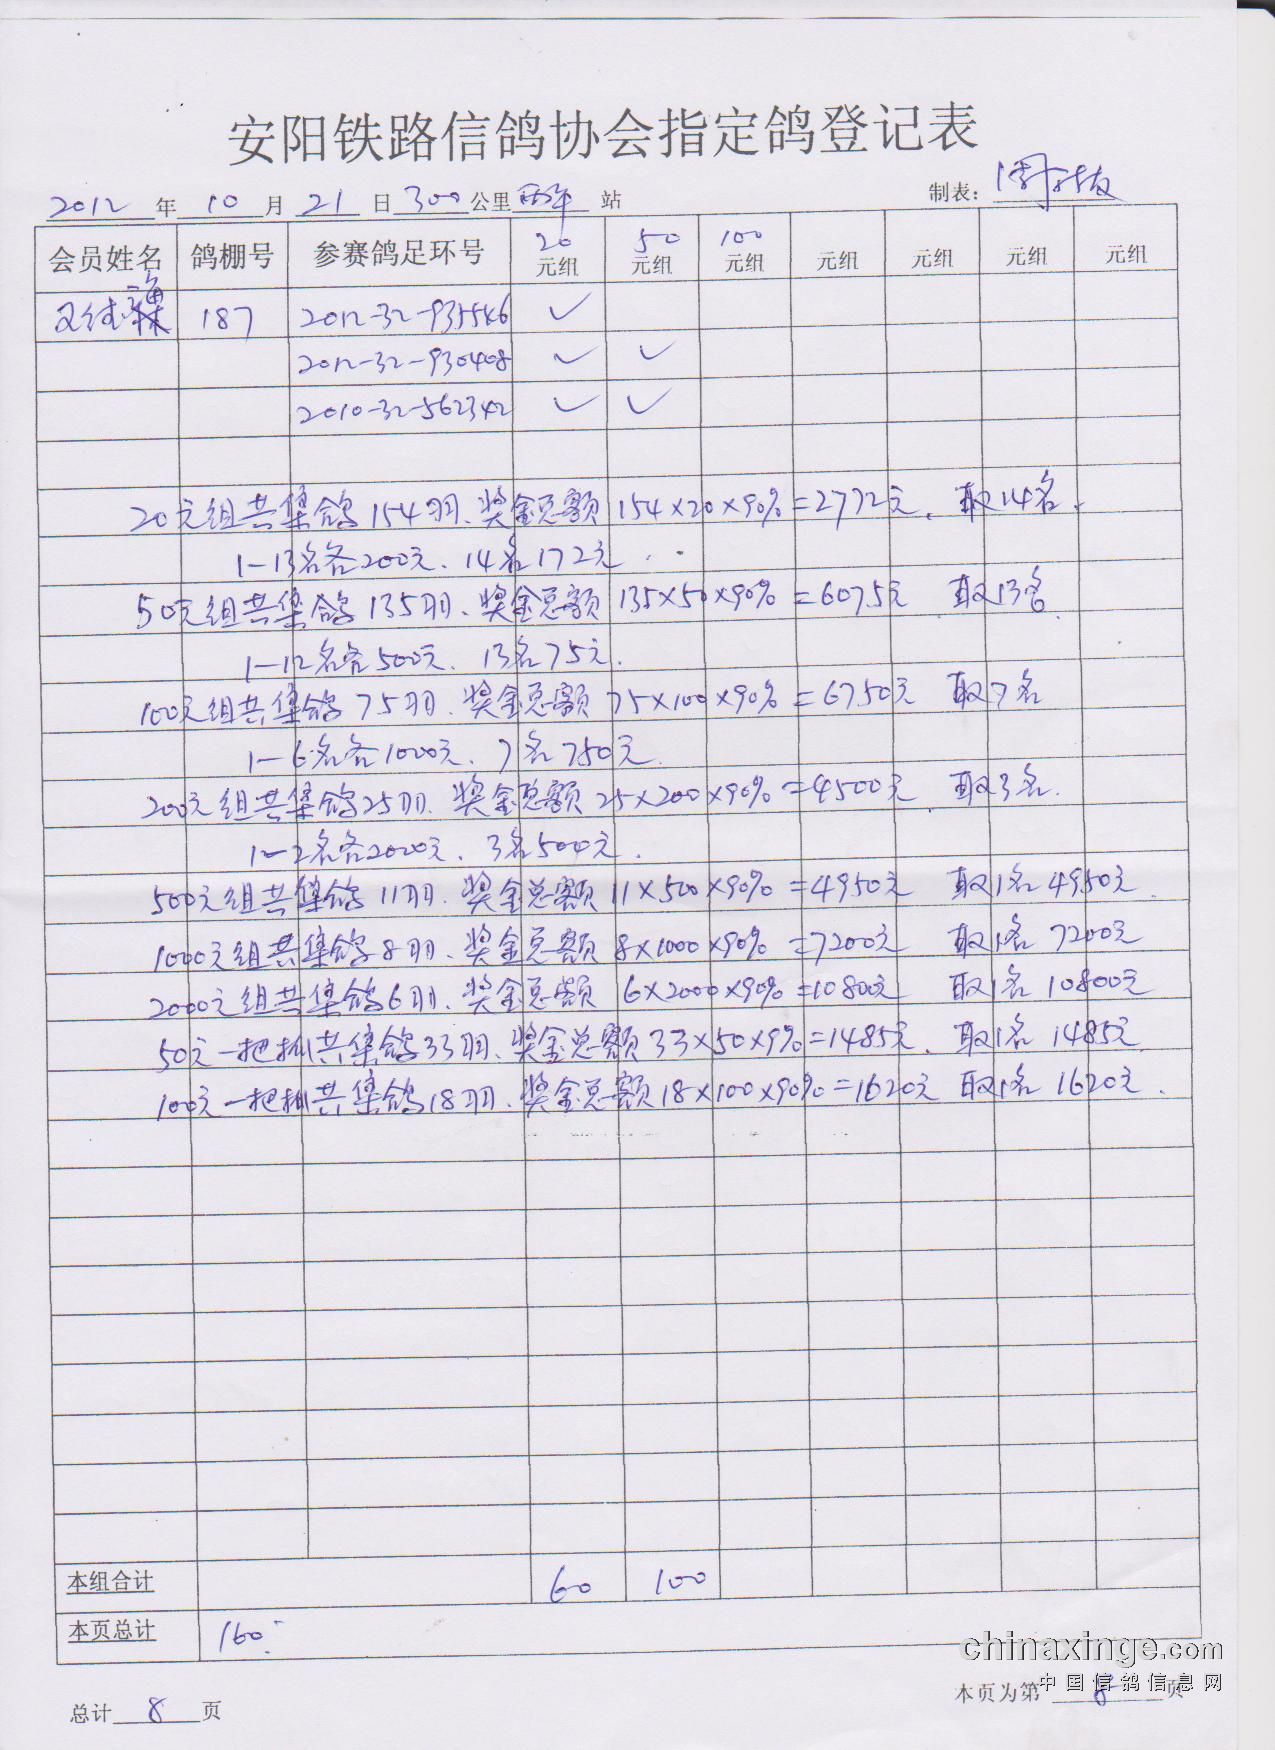 安阳铁路信鸽协会指定鸽登记表
2012年10月21日300公里站
制表：
会员姓名 鸽棚号 参赛鸽足环号 20元组 50元组 100元组 元组 元组 元组 元组
187 2012-32-935546 ✓
2012-32-930408 ✓ ✓
2010-32-562342 ✓ ✓
20元组共集鸽154羽、奖金总额154×20×90%=2772元、取14名.
1-13名各200元、14名172元
50元组共集鸽135羽、奖金总额135×50×90%=6075元 取13名
1-12名各500元、13名75元.
100元组共集鸽75羽、奖金总额75×100×90%=6750元 取7名
1-6名各1000元、7名750元.
200元组共集鸽25羽、奖金总额25×200×90%=4500元、取3名.
1-2名各2000元、3名500元.
500元组共集鸽11羽、奖金总额11×500×90%=4950元 取1名4950元.
1000元组共集鸽8羽、奖金总额8×1000×90%=7200元 取1名7200元
2000元组共集鸽6羽、奖金总额6×2000×90%=10800元 取1名10800元
50元一把抓共集鸽33羽、奖金总额33×50×9%=1485元、取1名1485元
100元一把抓共集鸽18羽、奖金总额18×100×90%=1620元 取1名1620元.
本组合计 60 100
本页总计 160.
chinaxinge.com
中国信鸽信息网
总计8页 本页为第8页